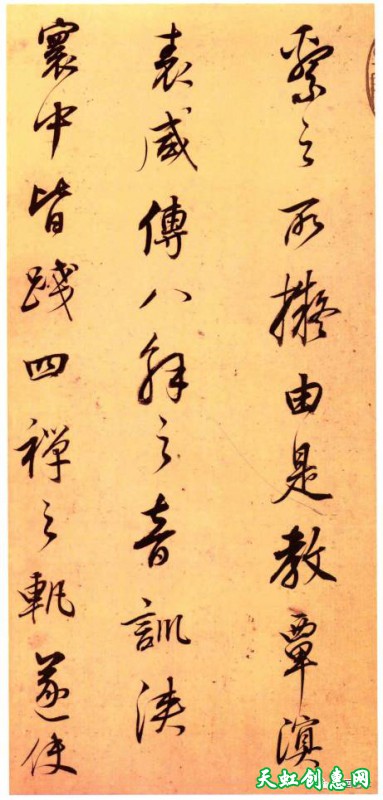 繫之所擬由是教覃溟
表咸傳八解之音訓浹
寰中皆踐四禪之軌遂使
天虹创惠网